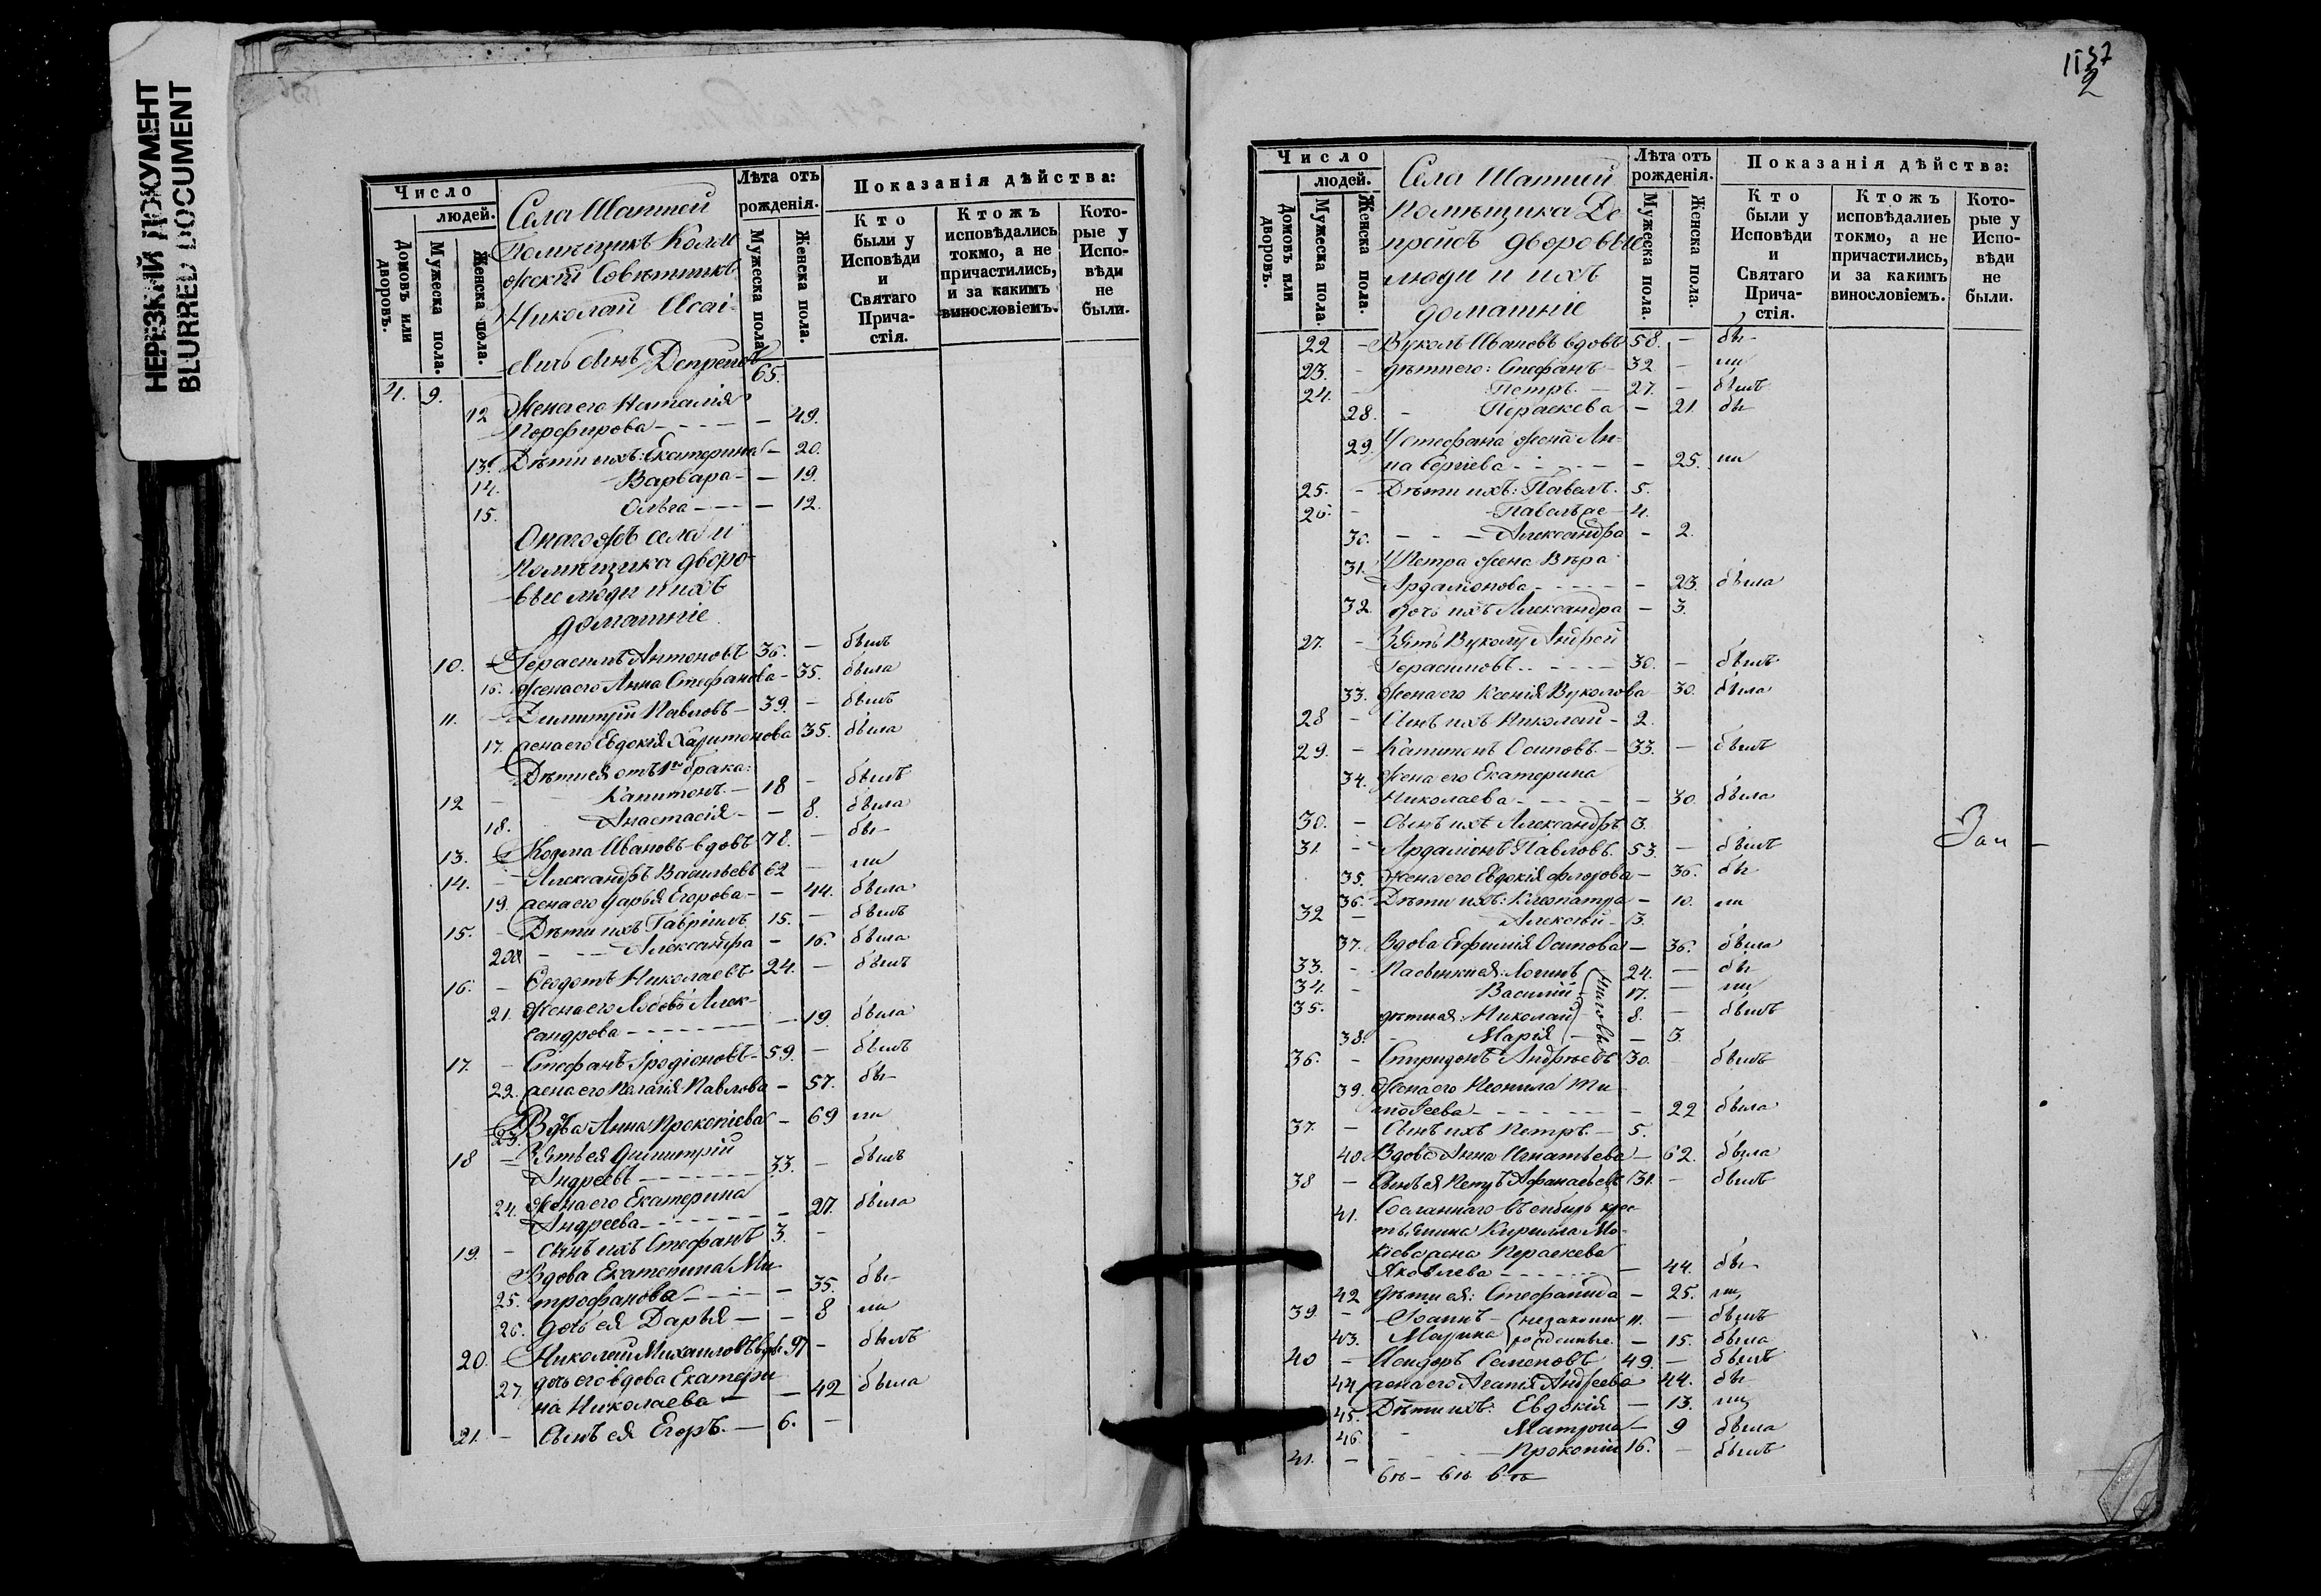 НЕРЕЗКИЙ ДОКУМЕНТ
BLURRED DOCUMENT
Число
людей.
Домовъ или дворовъ.
Мужеска пола.
Женска пола.
Лѣта отъ рожденія.
Мужеска пола.
Женска пола.
Показанія дѣйства:
Кто были у Исповѣди и Святаго Причастія.
Ктожъ исповѣдались токмо, а не причастились, и за какимъ винословіемъ.
Которые у Исповѣди не были.
Села Шаптей
Помѣщикъ Колле
жскій Совѣтникъ
Николай Исаі-
4. 9. евичь сынъ Депрейсъ 65.
12 Жена его Наталія
Порфирова - - - - — 49.
13. Дѣти ихъ: Екатерина — 20.
14. Варвара - — 19.
15. Ольга - - - — 12.
Онагожъ села и
помѣщика дворо-
вые люди и ихъ
домашніе
10. — Герасимъ Антоновъ 36. — былъ
16. Жена его Анна Стефанова - 35. была
11. — Димитрій Павловъ — 39. — былъ
17. жена его Евдокія Харитонова 35. была
Дѣти ея отъ 1го брака:
12 — Капитонъ — 18 — былъ
18. Анастасія - — 8. была
13. — Козма Ивановъ вдовъ 78. — бы-
14. — Александръ Васильевъ 62 — ли
19. жена его Дарья Егорова - — 44. была
15. — Дѣти ихъ Гавріилъ 15. — былъ
20. - - - Александра — 16. была
16. — Феодотъ Николаевъ 24. — былъ
21. Жена его Любовь Алек-
сандрова - - - - - — 19. была
17. — Стефанъ Іродіоновъ - 59. — былъ
22. жена его Пелагія Павлова — 57. бы-
23. Вдова Анна Прокопіева — 69 ли
18 — Зять ея Димитрій
Андреевъ - - - - - 33. — былъ
24. Жена его Екатерина
Андреева - - - - - — 27. была
19. — сынъ ихъ Стефанъ 3. —
Вдова Екатерина Ми
25. трофанова - - - - — 35. бы-
26. дочь ея Дарья — — 8 ли
20. — Николай Михаиловъ вдв. 97 — былъ
27. дочь его вдова Екатери
на Николаева — — 42 была
21. — Сынъ ея Егоръ. — 6. —
2
Число
людей.
Домовъ или дворовъ.
Мужеска пола.
Женска пола.
Лѣта отъ рожденія.
Мужеска пола.
Женска пола.
Показанія дѣйства:
Кто были у Исповѣди и Святаго Причастія.
Ктожъ исповѣдались токмо, а не причастились, и за какимъ винословіемъ.
Которые у Исповѣди не были.
Села Шаптей
Помѣщика Де
прейсъ дворовые
люди и ихъ
домашніе
22 — Вуколъ Ивановъ вдовъ 58. — бы-
23. - дѣти его: Стефанъ - 32 — ли
24. - Петръ — 27. — былъ
28. - Параскева — 21. бы
29. У Стефана жена Ан-
на Сергіева - - - - — 25. ли
25. — Дѣти ихъ: Павелъ. 5.
26. — Павелъ же - 4.
30. - - - Александра — 2.
31. У Петра жена Вѣра
Ардаліонова - - - - — 23. была
32. дочь ихъ Александра — 3.
27. — Зять Вуколу Андрей
Герасимовъ - - - - 30. — былъ
33. Жена его Ксенія Вуколова 30. была
28 — Сынъ ихъ Николай - 2.
29. — Капитонъ Осиповъ — 33. — былъ
34. Жена его Екатерина
Николаева - - - - — 30. была
30. — Сынъ ихъ Александръ 3.
31 — Ардаліонъ Павловъ 53. — былъ
35. Жена его Евдокія Флорова — 36. бы
36. Дѣти ихъ: Клеопатра — 10. ли
32 — Алексѣй - 3.
37. Вдова Ефимія Осипова — 36. была
33. — Пасынки ея: Логинъ 24. — бы-
34. — Василій - 17. — ли
35. дѣти ея: Николай 8. — былъ
38. - Марія — 3.
36. — Спиридонъ Андреевъ 30. — былъ
39. Жена его Неонила Ти
моѳеева - - - - - — 22 была
37. — Сынъ ихъ Петръ — 5.
40. Вдова Анна Игнатьева — 62. была
38 — Сынъ ея Петръ Афанасьевъ 31. — былъ
41. Сосланнаго въ сибирь крес-
тьянина Кирилла Мо-
кіева жена Параскева
Яковлева - - - - - — 44. бы-
42 дѣти ея: Стефанида — 25. ли
39. — Іоаннъ - незаконно 11. — былъ
43. Марина рожденные. — 15. была
40 — Исидоръ Семеновъ 49. — былъ
44. жена его Агапія Андреева 44. бы-
45. Дѣти ихъ: Евдокія — 13. ли
46. - Матрона — 9 была
41. — - - - Прокопій 16. — былъ